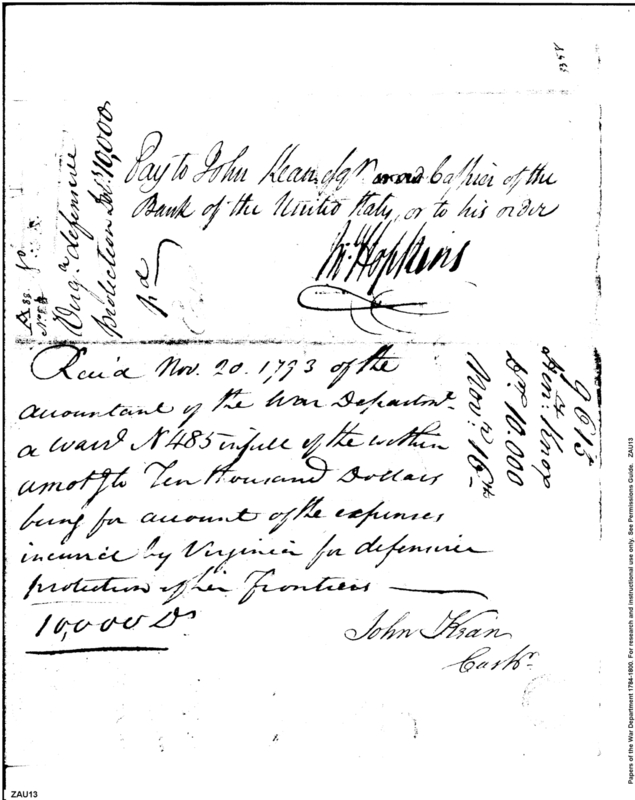 3358
Virga defensive
protection Dolrs 10,000
pd
Pay to John Kean esqr Cashier of the
Bank of the United States, or to his order
Jn Hopkins
Rec'd Nov. 20. 1793 of the
accountant of the War Departmt.
a warrt N 485 in full of the within
amotg to Ten thousand Dollars
being for account of the expenses
incurr'd by Virginia for defensive
protection of her Frontiers
10,000 Ds
John Kean
Cashr.
9613
Hen: Knox
Ds. 10.000
Novr: 16th
Papers of the War Department 1784-1800. For research and instructional use only. See Permissions Guide. ZAU13
ZAU13